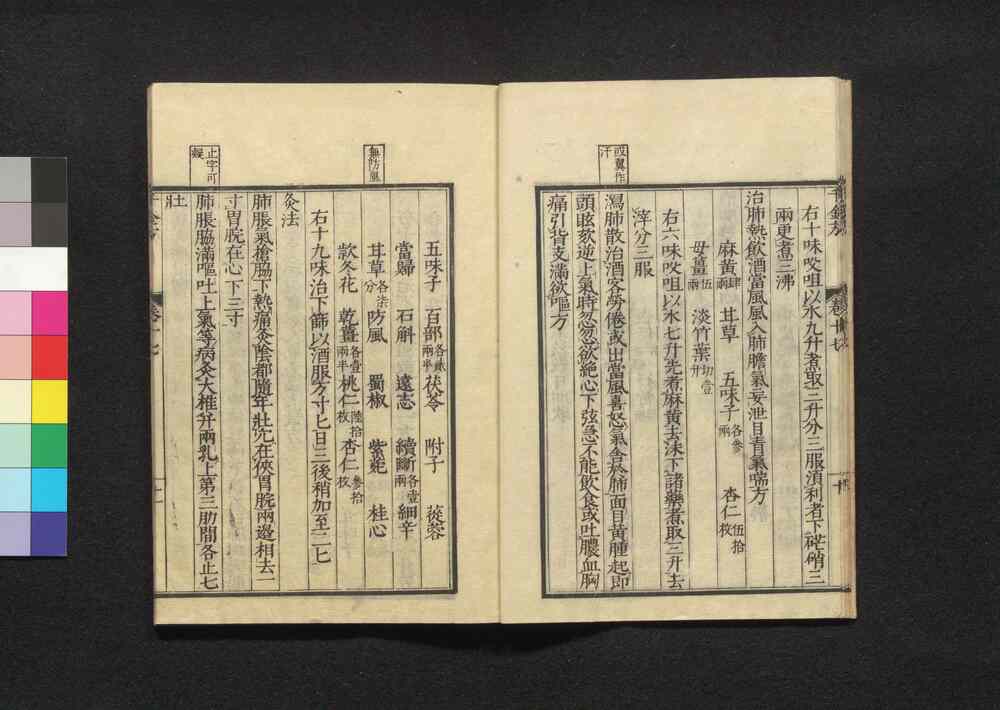 或翼作
汗
右十味㕮咀以水九升煮取三升分三服須利者下芒硝三
兩更煮三沸
治肺熱飲酒當風風入肺膽氣妄泄目青氣喘方
麻黃肆兩 甘草 五味子各參兩 杏仁伍拾枚
母薑伍兩 淡竹葉切壹升
右六味㕮咀以水七升先煮麻黃去沫下諸藥煮取三升去
滓分三服
瀉肺散治酒客勞倦或出當風喜怒氣舍於肺面目黃腫起即
頭眩欬逆上氣時忽忽欲絕心下弦急不能飲食或吐膿血胸
痛引背支滿欲嘔方
無防風
止字可
疑
五味子 百部各貳兩半 茯苓 附子 蓯蓉
當歸 石斛 遠志 續斷各壹兩 細辛
甘草各柒分 防風 蜀椒 紫菀 桂心
款冬花 乾薑各壹兩半 桃仁陸拾枚 杏仁參拾枚
右十九味治下篩以酒服方寸匕日三後稍加至二匕
灸法
肺脹氣搶脇下熱痛灸陰都隨年壯穴在俠胃脘兩邊相去一
寸胃脘在心下三寸
肺脹脇滿嘔吐上氣等病灸大椎并兩乳上第三肋間各止七
壯